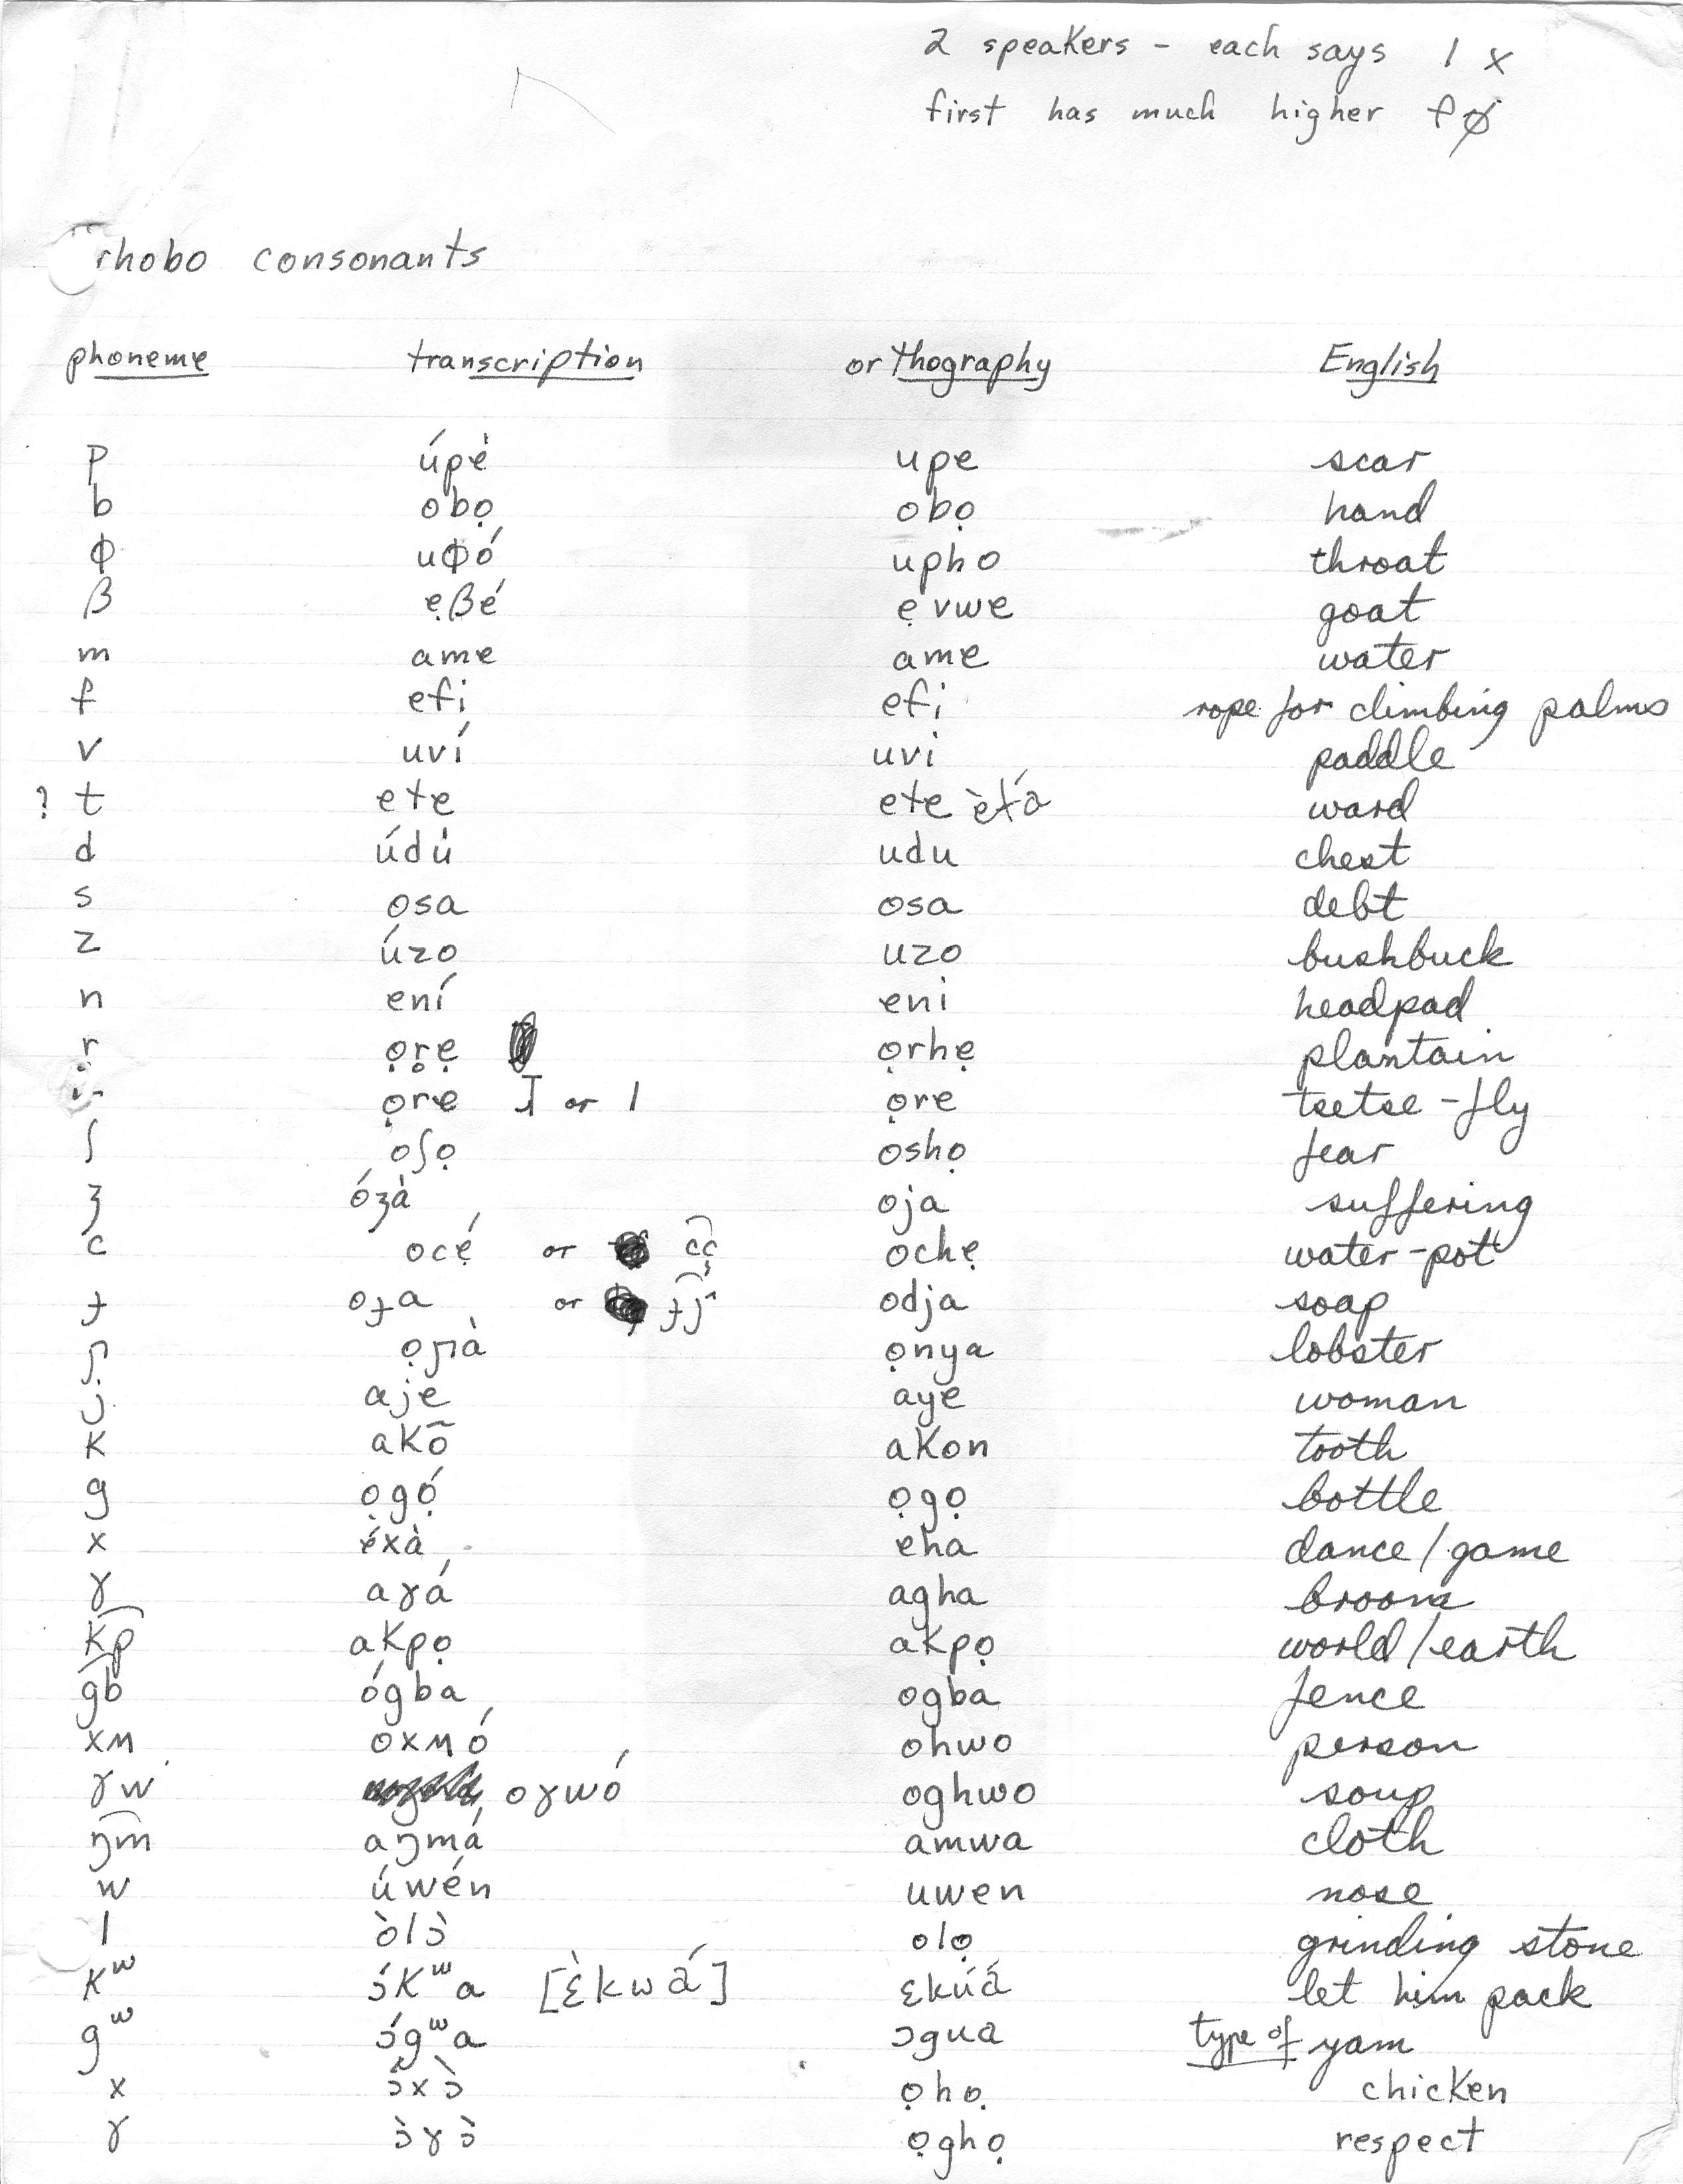 2 speakers - each says 1 x
first has much higher fØ
rhobo consonants
phoneme transcription orthography English
p úpè upe scar
b obọ obọ hand
ɸ uɸó upho throat
β ẹβé ẹvwe goat
m ame ame water
f efi efi rope for climbing palms
v uví uvi paddle
? t ete ete ètá ward
d údù udu chest
s osa osa debt
z úzo uzo bushbuck
n ení eni headpad
r̥ ọr̥ẹ ọrhẹ plantain
ọre ɺ or l ọre tsetse-fly
ʃ oʃọ oshọ fear
ʒ óʒà oja suffering
c ocẹ́ or c͡ç ochẹ water-pot
ɟ oɟa or ɟ͡ʝ odja soap
ɲ ọɲà ọnya lobster
j aje aye woman
k akõ akon tooth
g ọgọ́ ọgọ bottle
x éxà eha dance/game
ɣ aɣá agha broom
k͡p akpọ akpọ world/earth
g͡b ógba ogba fence
xʍ oxʍó ohwo person
ɣw oɣwó oghwo soup
ŋ͡m aŋmá amwa cloth
w úwén uwen nose
l òlɔ̀ olọ grinding stone
kʷ ɔ́kʷa [ɛ̀kwá] ɛkúá let him pack
gʷ ɔ́gʷa ɔgua type of yam
x ɔ̂xɔ̀ ọhọ chicken
ɣ ɔ̀ɣɔ̀ ọghọ respect